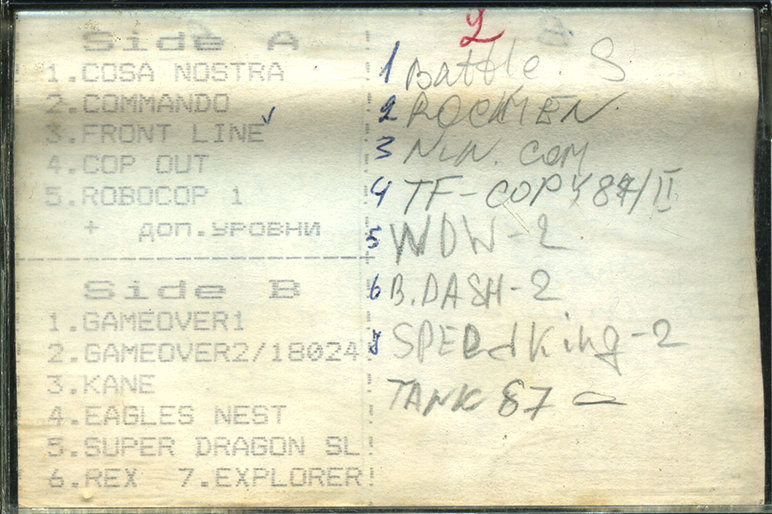 Side A
1.COSA NOSTRA
2.COMMANDO
3.FRONT LINE
4.COP OUT
5.ROBOCOP 1
+ доп.уровни
Side B
1.GAMEOVER1
2.GAMEOVER2/18024
3.KANE
4.EAGLES NEST
5.SUPER DRAGON SL!
6.REX 7.EXPLORER!
2
1 Battle. S
2 ROCKMEN.
3 NIN. COM
4 TF-COPY 87/II
5 WDW-2
6 B.DASH-2
8 SPEEdKing-2
TANK 87 -